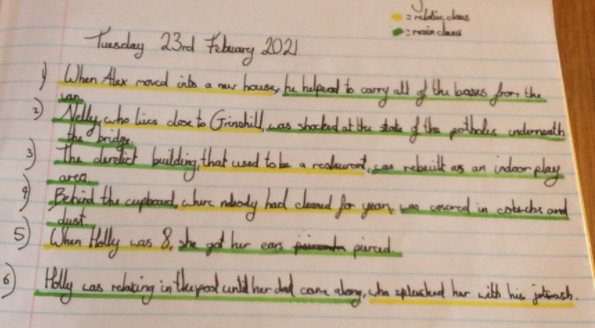 = relative clauses
= main clauses
Tuesday 23rd Febuary 2021
1) When Alex moved into a new house, he helped to carry all of the boxes from the
van.
2) Nelly, who lives close to Grinshill, was shocked at the state of the potholes underneath
the bridge.
3) The derelict building, that used to be a restaurant, was rebuilt as an indoor play
area.
4) Behind the cupboard, where nobody had cleaned for years, was covered in cobwebs and
dust.
5) When Holly was 8, she got her ears pierced.
6) Holly was relaxing in the pool until her dad came along, who splashed her with his